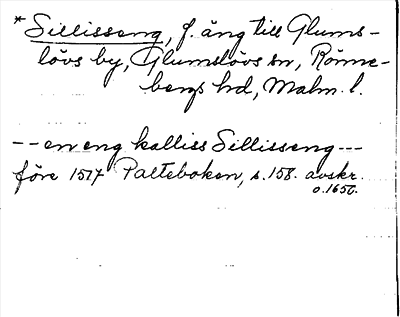 * Sillisseng, f. äng till Glums-
lövs by, Glumslövs sn, Rönne-
bergs hd, Malm. l.
-- en eng kalliss Sillisseng ---
före 1517 Palteboken, s. 158. avskr.
o. 1650.